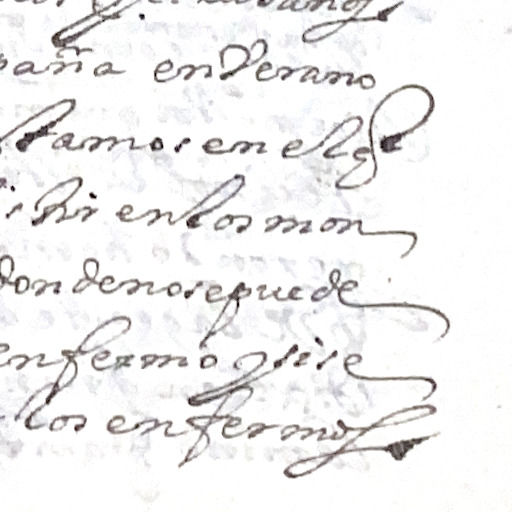 paña en Verano
stamos en el q^e
istir en los mon
donde no se puede
enfermo y si se
los enfermos